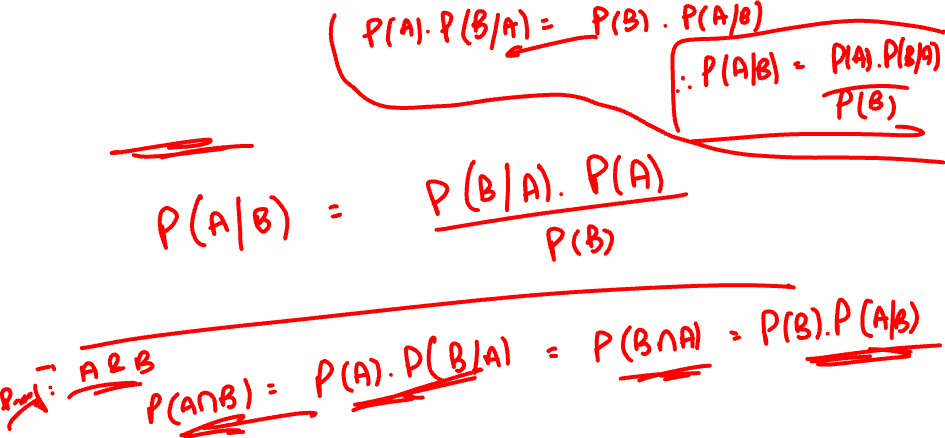 P(A).P(B/A) = P(B).P(A/B)
∴ P(A|B) = P(A).P(B/A) / P(B)
P(A|B) = P(B|A).P(A) / P(B)
Proof: A & B
P(A∩B) = P(A).P(B/A) = P(B∩A) = P(B).P(A|B)